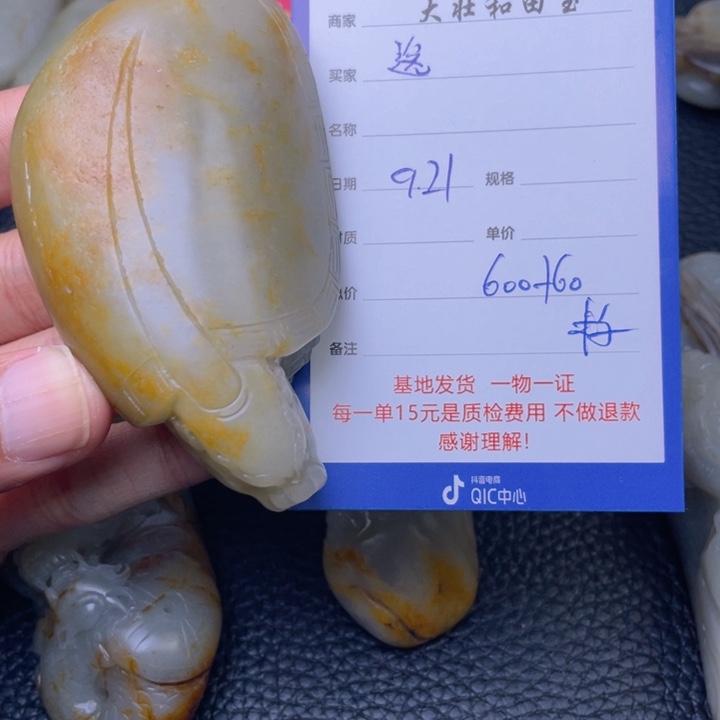 商家 大壮和田玉
买家
名称
日期 9.21 规格
质 单价
价 600+60
备注
基地发货 一物一证
每一单15元是质检费用 不做退款
感谢理解!
抖音电商
QIC中心